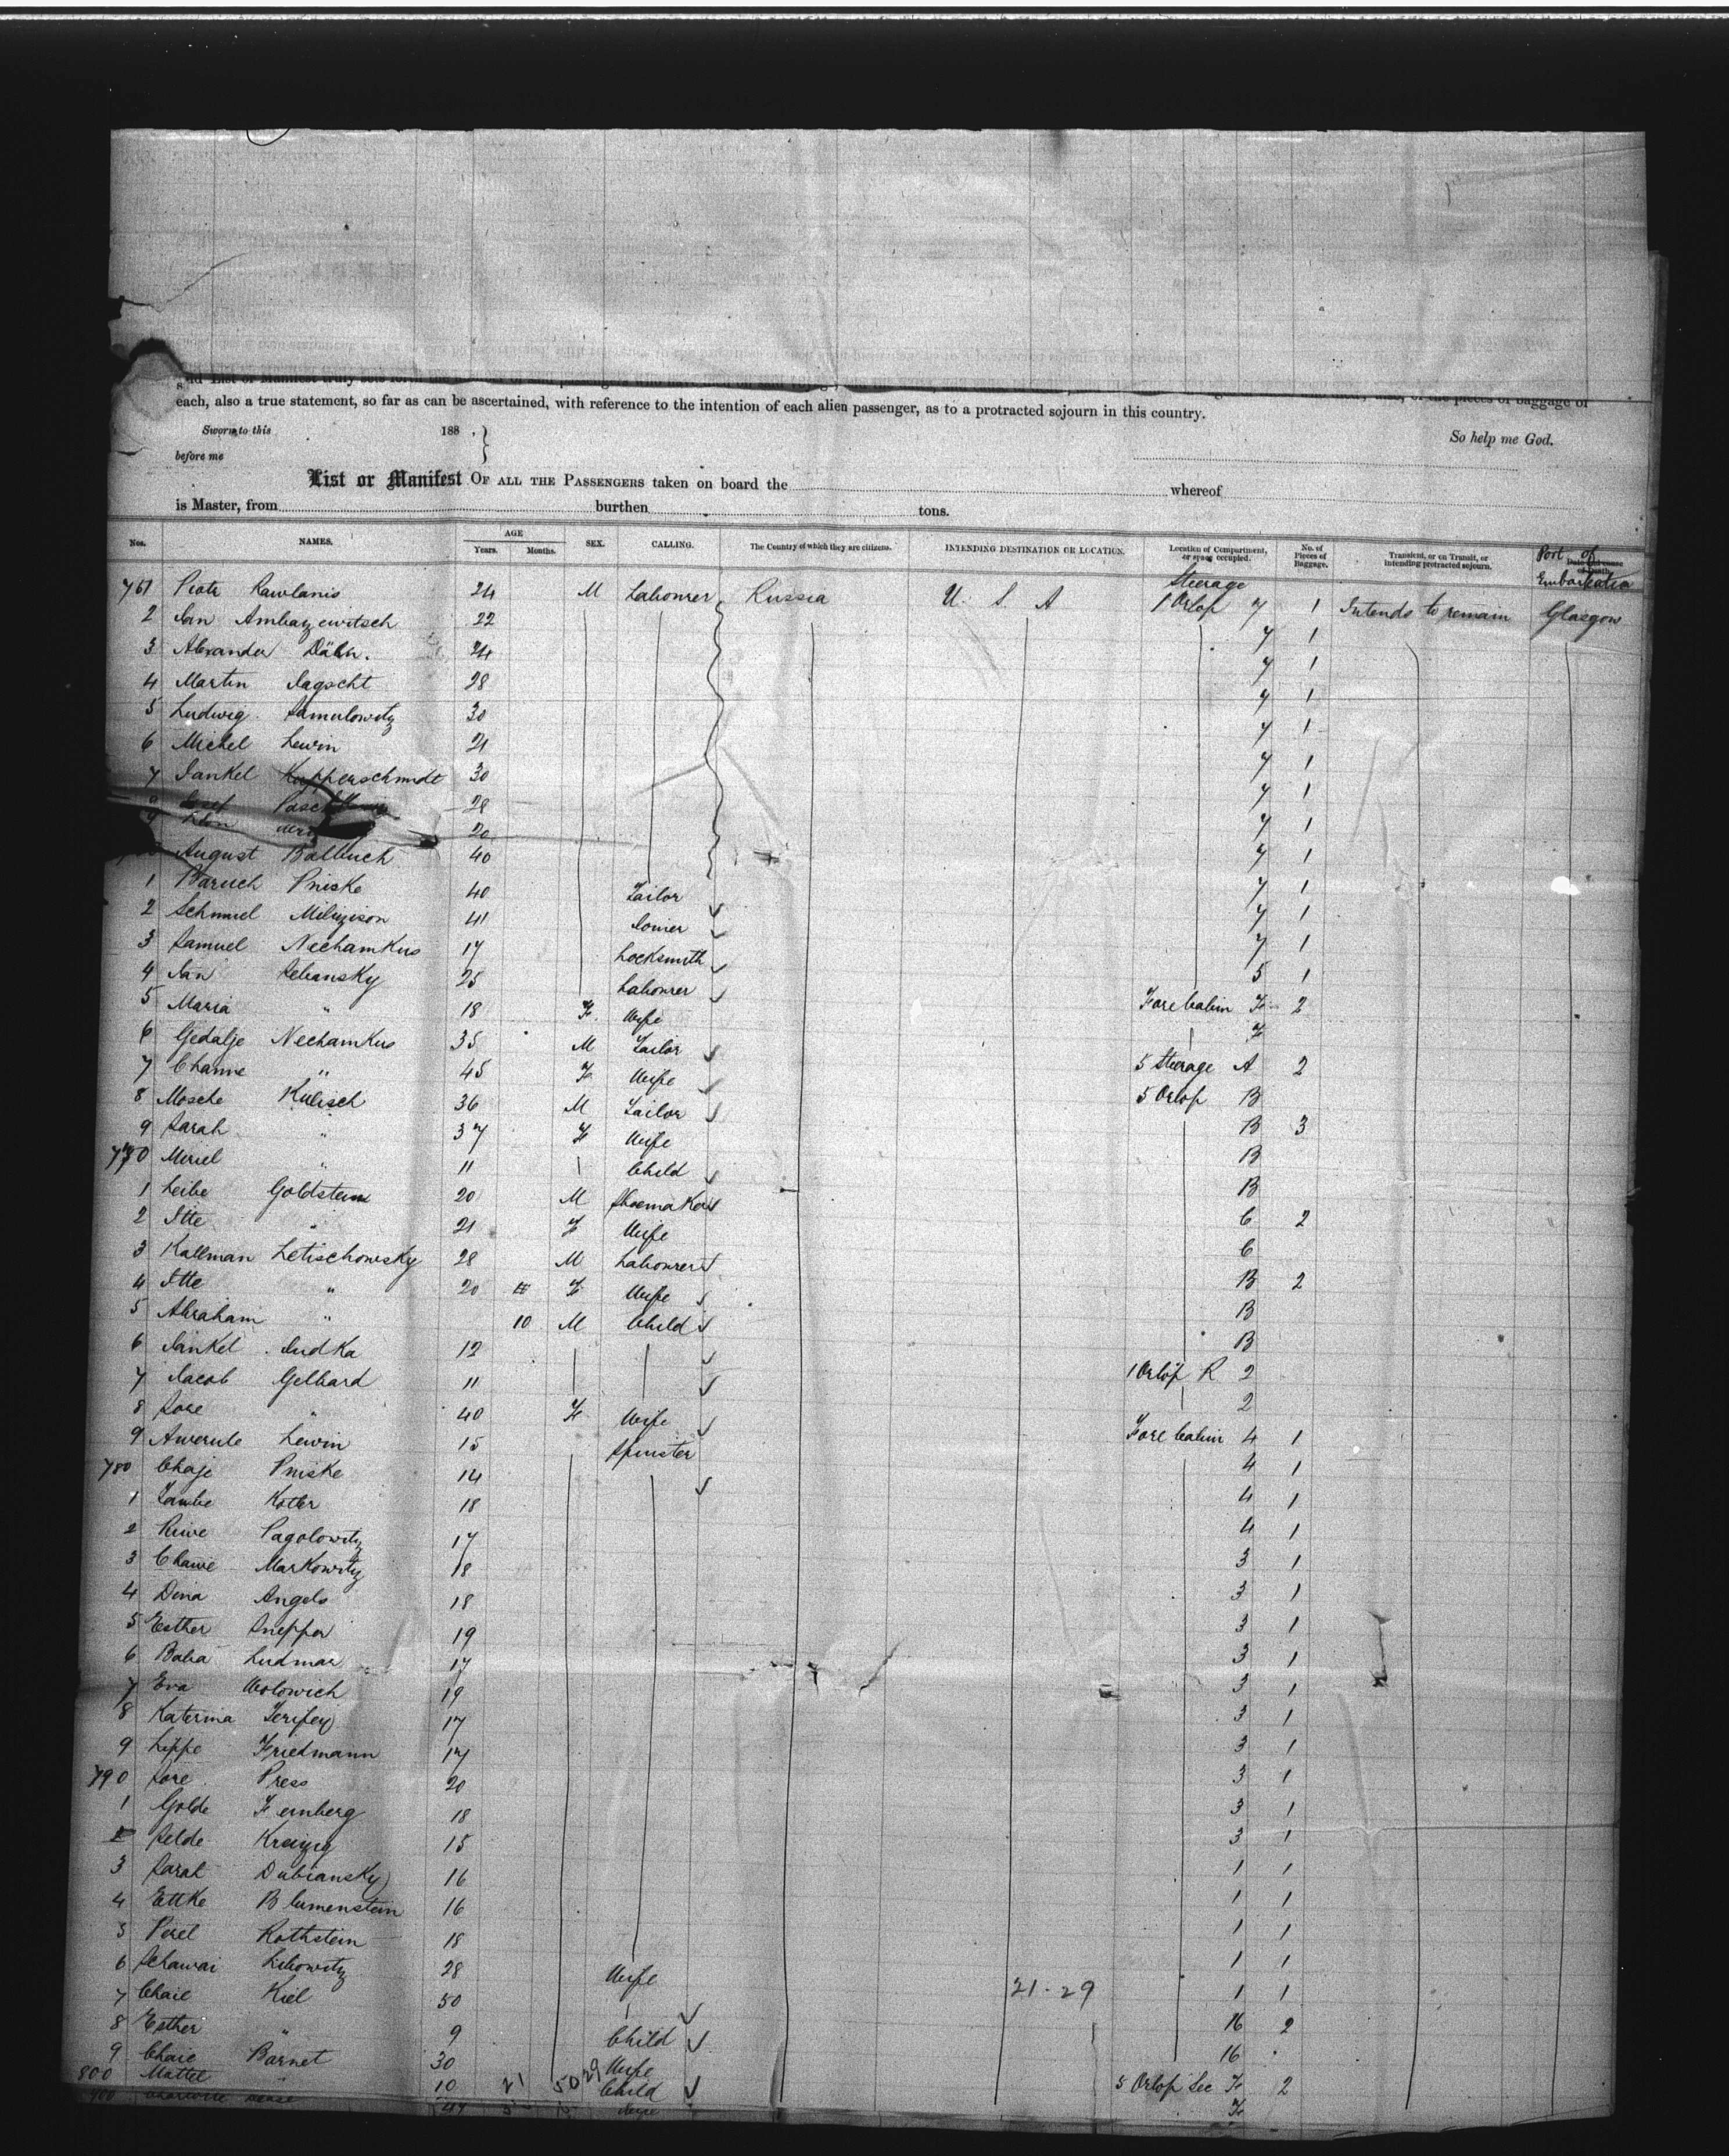 each, also a true statement, so far as can be ascertained, with reference to the intention of each alien passenger, as to a protracted sojourn in this country.
Sworn to this 188 .
So help me God.
before me
List or Manifest OF ALL THE PASSENGERS taken on board the whereof
is Master, from burthen tons.
Nos. NAMES. AGE Years. Months. SEX. CALLING. The Country of which they are citizens. INTENDING DESTINATION OR LOCATION. Location of Compartment, or space occupied. No. of Pieces of Baggage. Transient, or on Transit, or intending protracted sojourn. Port of Embarkation
761 Piotr Rawlanis 24 M Labourer Russia U. S. A Steerage 1 Orlop 7 1 Intends to remain Glasgow
2 Jan 22 7 1
3 Alexander 24 7 1
4 Martin Jagscht 28 7 1
5 Ludwig Samulowitz 30 7 1
6 Michel Lewin 21 7 1
7 Jankel Kupperschmidt 30 7 1
28 7 1
9 20 7 1
August Balbuch 40 7 1
1 Baruch Pniske 40 Tailor 7 1
2 Schmuel 41 Joiner 7 1
3 Samuel Nechamkus 17 Locksmith 7 1
4 Jan Sebansky 25 Labourer 5 1
5 Maria " 18 F Wife Fore Cabin F 2
6 Gedalje Nechamkus 35 M Tailor F
7 Channe " 45 F Wife 5 Steerage A 2
8 Mosche Kulisch 36 M Tailor 5 Orlop B
9 Sarah " 37 F Wife B 3
770 Meriel " 11 Child B
1 Leibe Goldstein 20 M Shoemaker B
2 Itte " 21 F Wife C 2
3 Kallman Letischowsky 28 M Labourer C
4 Itte " 20 F Wife B 2
5 Abraham " 10 M Child B
6 Jankel Judka 12 B
7 Jacob Gelbard 11 1 Orlop R 2
8 Sore " 40 F Wife 2
9 Awerule Lewin 15 Spinster Fore Cabin 4 1
780 Chaje Pniske 14 4 1
1 Taube Kotler 18 4 1
2 Riwe Pagolowitz 17 4 1
3 Chawe Markowitz 18 3 1
4 Dina Angels 18 3 1
5 Esther Sneppa 19 3 1
6 Baba Ludmar 17 3 1
7 Eva Wolowich 19 3 1
8 Katerina 17 3 1
9 Lippe Friedmann 17 3 1
790 Sore Press 20 3 1
1 Golde Fernberg 18 3 1
Selde 15 3 1
3 Sarah Dubiansky 16 1 1
4 Ettke Blumenstein 16 1 1
5 Perel Rothstein 18 1 1
6 Schawai Libowitz 28 Wife 1 1
7 Chaie Kiel 50 21-29 1 1
8 Esther " 9 Child 16 2
9 Chaie Barnet 30 Wife 16
800 Mattel " 10 21 50 29 Child 5 Orlop Sec F 2
F